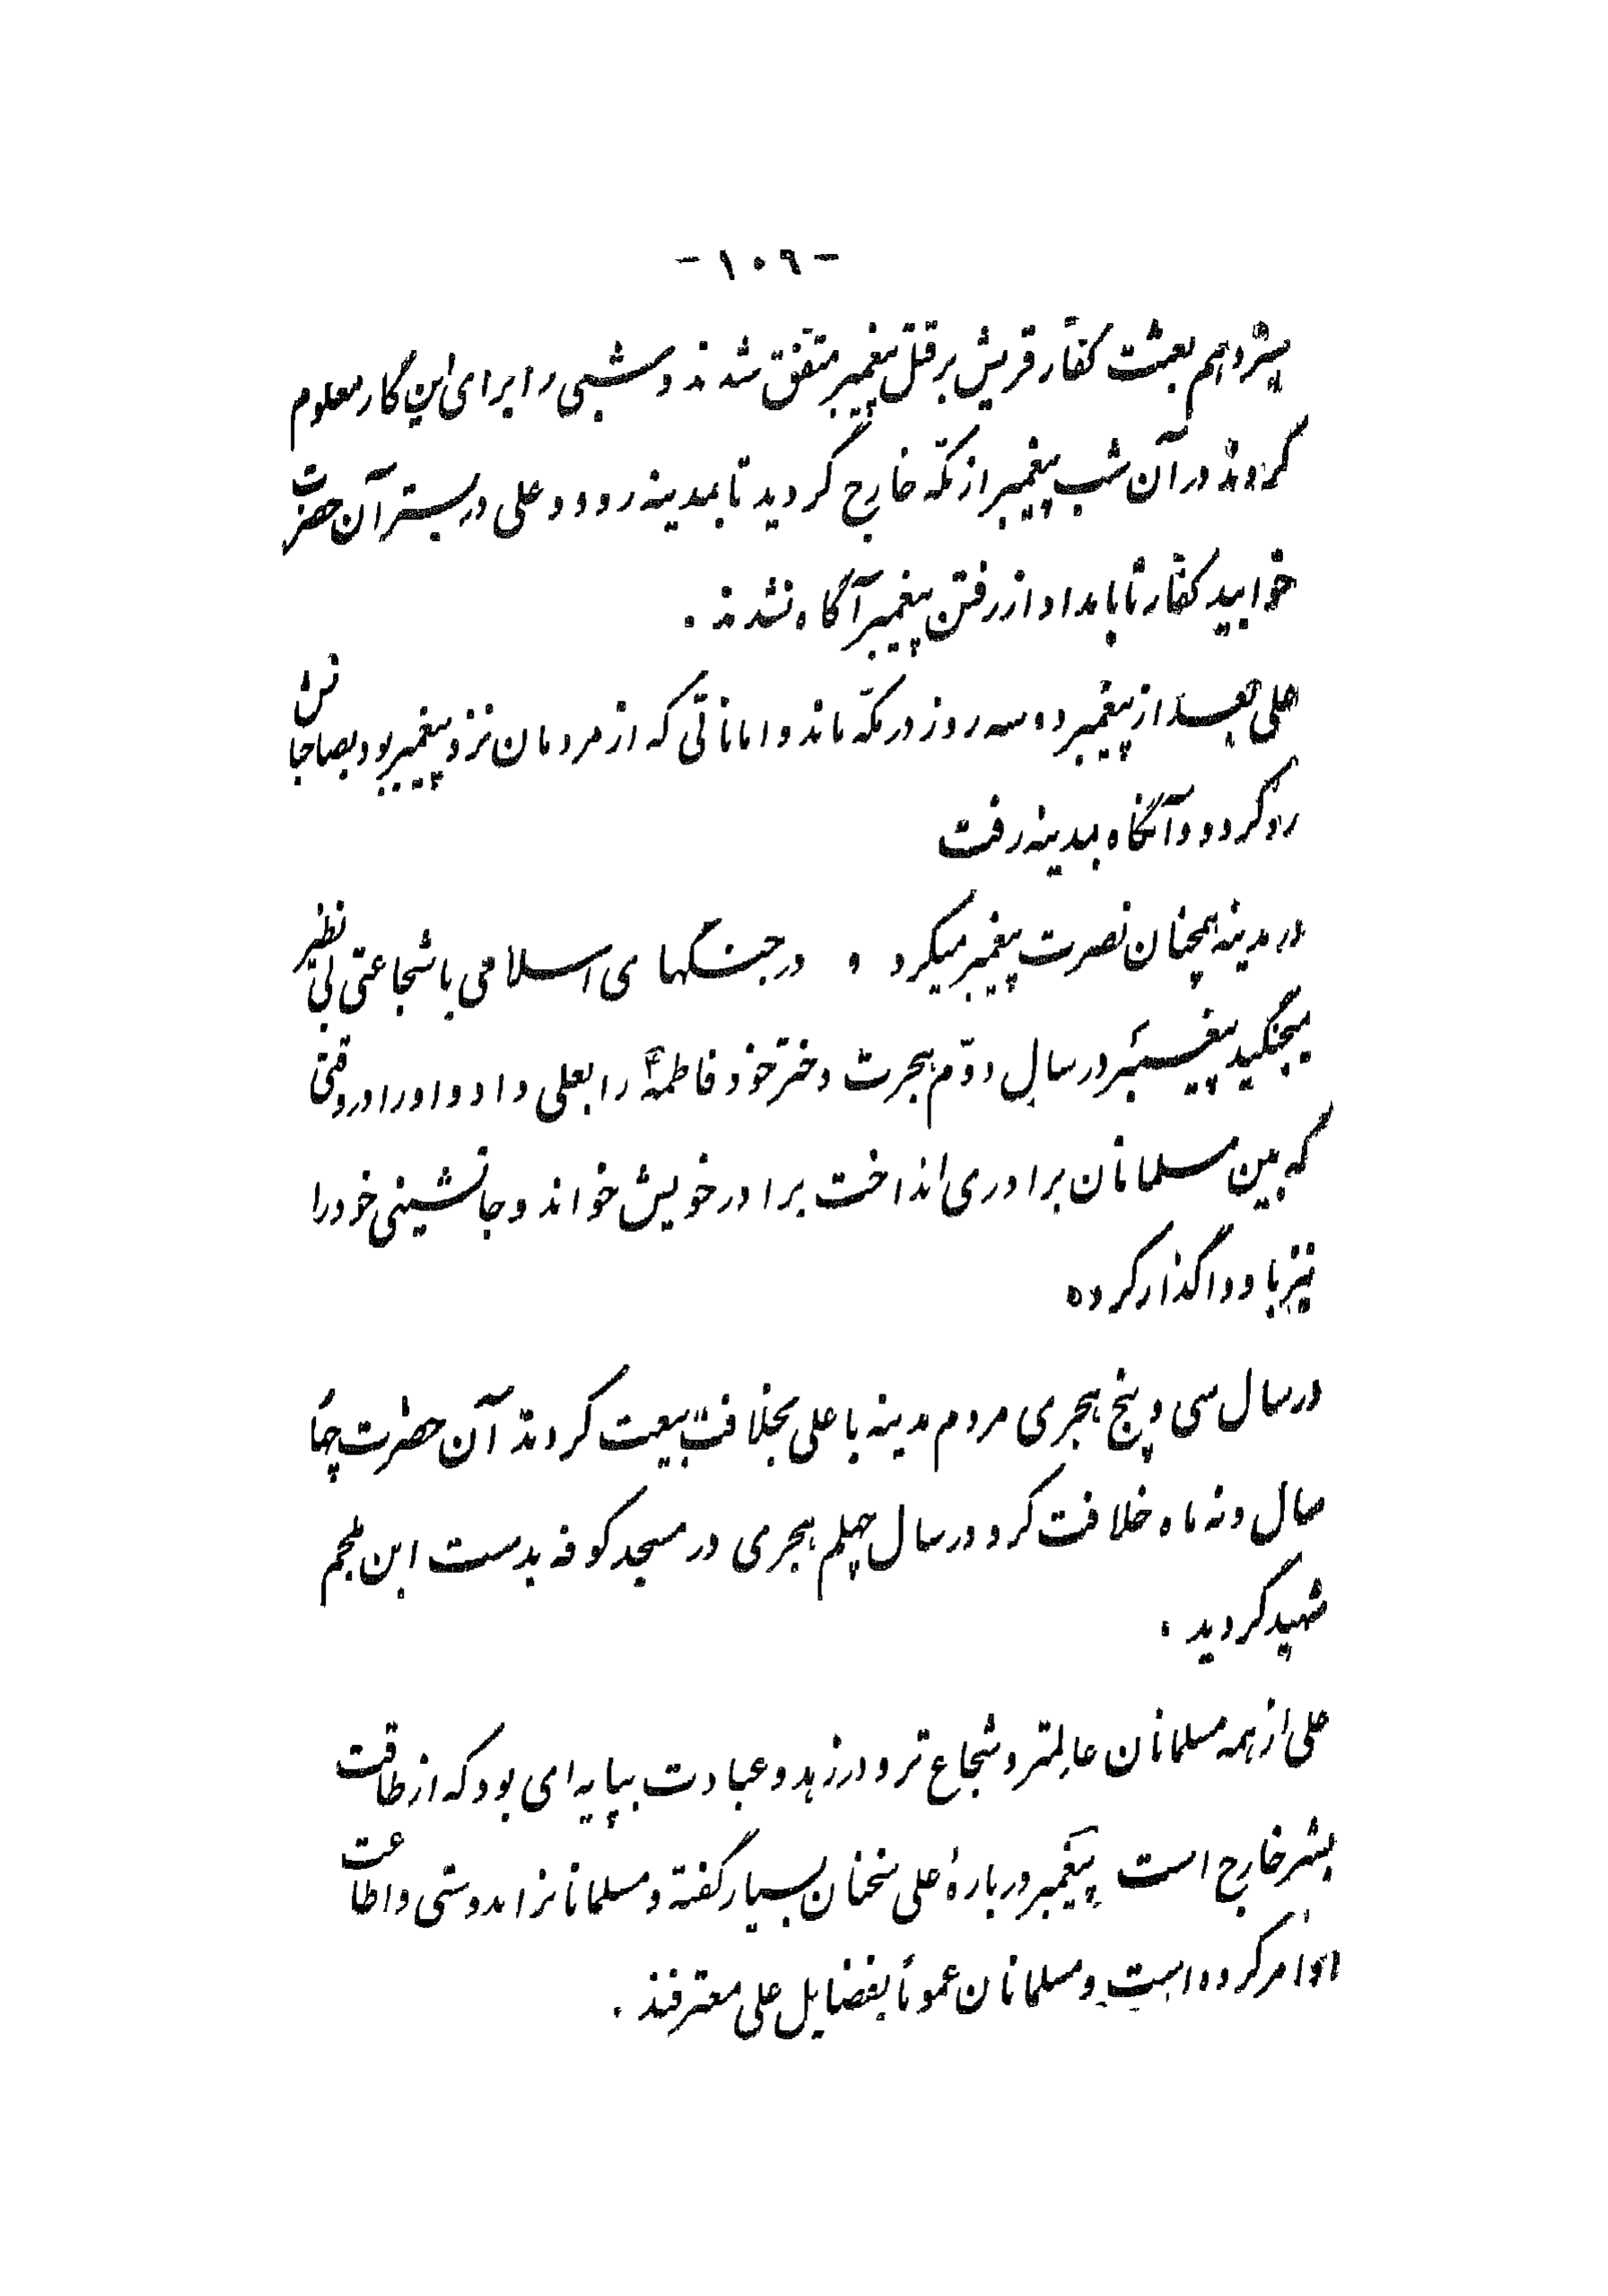 -۱۰۶-
سیزدهم بعثت کفّار قریش بر قتل پیغمبر متّفق شدند و شبی را برای این کار معلوم
کردند در آن شب پیغمبر از مکّه خارج گردید تا بمدینه رود و علی در بستر آن حضرت
خوابید کفّار تا بامداد از رفتن پیغمبر آگاه نشدند .
علی بعد از پیغمبر دو سه روز در مکّه ماند و اماناتی که از مردمان نزد پیغمبر بود بصاحبانش
رد کرد و آنگاه بمدینه رفت
در مدینه همچنان نصرت پیغمبر میکرد و در جنگهای اسلامی با شجاعتی بی نظیر
میجنگید پیغمبر در سال دوّم هجرت دختر خود فاطمهٴ را بعلی داد و او را در وقتی
که بین مسلمانان برادری انداخت برادر خویش خواند و جانشینی خود را
نیز باو واگذار کرده
در سال سی و پنج هجری مردم مدینه با علی بخلافت بیعت کردند آن حضرت چهار
سال و نه ماه خلافت کرد و در سال چهلم هجری در مسجد کوفه بدست ابن ملجم
شهید گردید .
علی از همه مسلمانان عالمتر و شجاع تر و در زهد و عبادت بپایه ای بود که از طاقت
بشر خارج است پیغمبر دربارهٔ علی سخنان بسیار گفته و مسلمانانرا بدوستی و اطاعت
او امر کرده است و مسلمانان عموماً بفضایل علی معترفند .